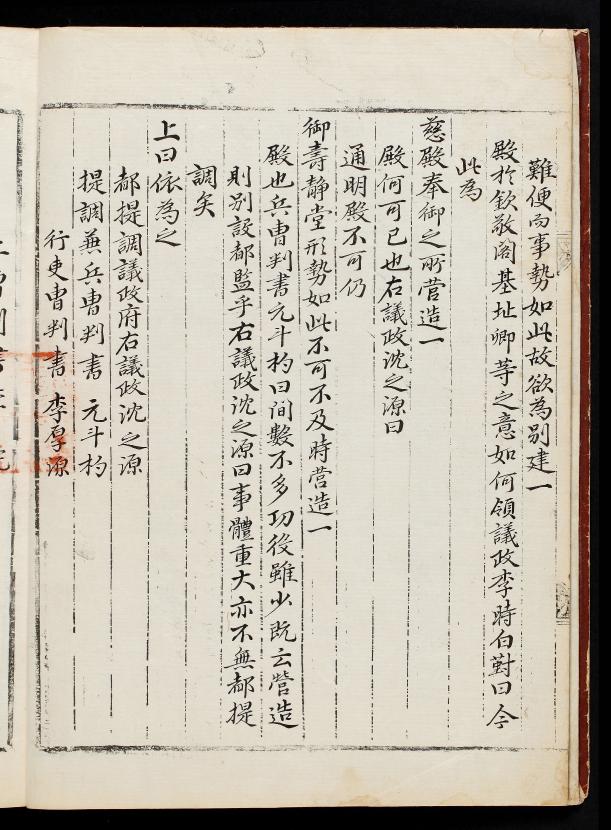 難便而事勢如此故欲為別建一
殿於欽敬閣基址卿等之意如何領議政李時白對曰今
此為
慈殿奉御之所营造一
殿何可已也右議政沈之源曰
通明殿不可仍
御壽静堂形勢如此不可不及時营造一
殿也兵曺判書元斗杓曰间數不多功役雖少既云營造
則别設都監乎右議政沈之源曰事體重大亦不無都提
調矣
上曰依為之
都提調議政府右議政沈之源
提調兼兵曺判書 元斗杓
行吏曺判書 李厚源